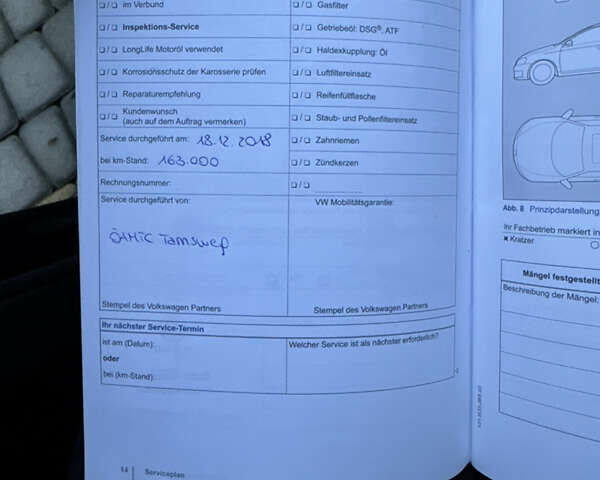 ☐ / ☐ im Verbund
☐ / ☐ Gasfilter
☐ / ☐ Inspektions-Service
☐ / ☐ Getriebeöl: DSG®, ATF
☐ / ☐ LongLife Motoröl verwendet
☐ / ☐ Haldexkupplung: Öl
☐ / ☐ Korrosionsschutz der Karosserie prüfen
☐ / ☐ Luftfiltereinsatz
☐ / ☐ Reparaturempfehlung
☐ / ☐ Reifenfüllflasche
☐ / ☐ Kundenwunsch
(auch auf dem Auftrag vermerken)
☐ / ☐ Staub- und Pollenfiltereinsatz
Service durchgeführt am: 18.12.2018
☐ / ☐ Zahnriemen
bei km-Stand: 163.000
☐ / ☐ Zündkerzen
Rechnungsnummer:
☐ / ☐
Service durchgeführt von:
VW Mobilitätsgarantie:
ÖAMTC Tamsweg
Stempel des Volkswagen Partners
Stempel des Volkswagen Partners
Ihr nächster Service-Termin
ist am (Datum):
Welcher Service ist als nächster erforderlich?
oder
bei (km-Stand):
14 Serviceplan
Abb. 8 Prinzipdarstellung
Ihr Fachbetrieb markiert in
× Kratzer
Mängel festgestellt
Beschreibung der Mängel: